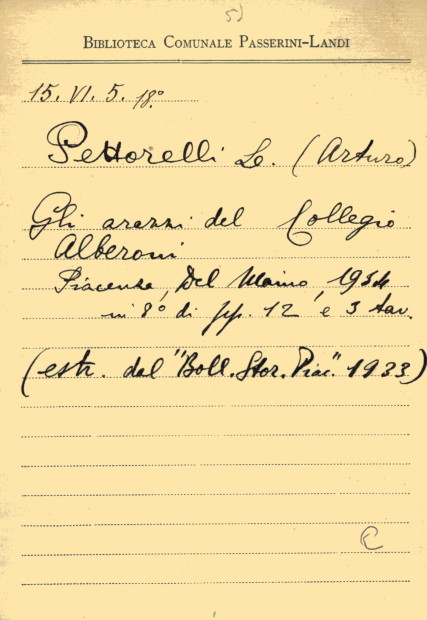 5)
BIBLIOTECA COMUNALE PASSERINI-LANDI
15. VI. 5. 18º
Pettorelli L. (Arturo)
Gli arazzi del Collegio
Alberoni
Piacenza, Del Maino 1934
in 8º di pp. 12 e 3 tav.
(estr. dal "Boll. Stor. Piac." 1933)
C